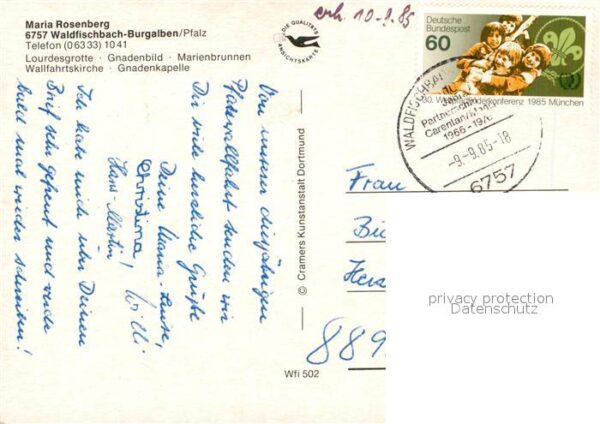 Maria Rosenberg
6757 Waldfischbach-Burgalben/Pfalz
Telefon (0 63 33) 10 41
Lourdesgrotte · Gnadenbild · Marienbrunnen
Wallfahrtskirche · Gnadenkapelle
DIE QUALITÄTS
ANSICHTSKARTE
erh. 10.9.85
Deutsche
Bundespost
60
30. Weltpfadfinderkonferenz 1985 München
WALDFISCHBA
Partnerschaft
Carentan/
1966-19
-9.-9.85-18
6757
Von unserer diesjährigen
Pfarrwallfahrt senden wir
Dir viele herzliche Grüße
Deine Maria-Luise,
Christina
Willi
Hans-Martin!
Ich habe mich über Deinen
Brief sehr gefreut und werde
bald mal wieder schreiben!
© Cramers Kunstanstalt Dortmund
Wfi 502
Frau
Bi
Herz
889
privacy protection
Datenschutz